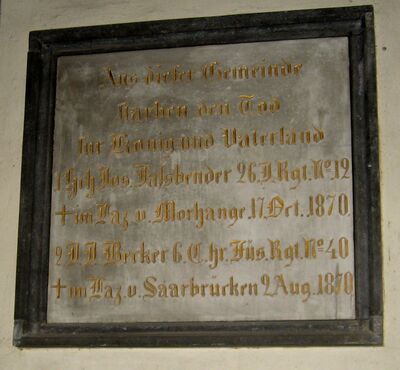 Aus dieser Gemeinde
starben den Tod
für König und Vaterland
1 Hch Jos. Fassbender 26. J. Rgt. No 12
† im Laz. v. Morhange. 17. Oct. 1870
2 J J Becker 6. C. hr. Füs. Rgt. No 40
† im Laz. v. Saarbrücken 2 Aug. 1870